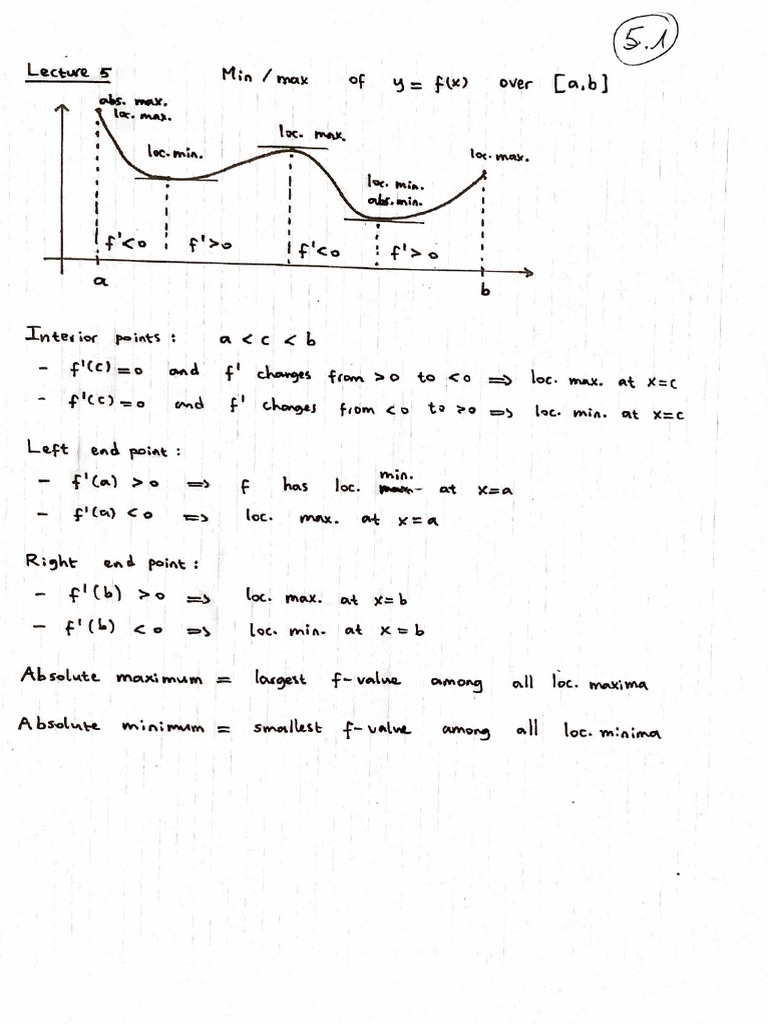 5.1
Lecture 5 Min / max of y = f(x) over [a,b]
abs. max.
loc. max.
loc. max.
loc. min.
loc. max.
loc. min.
abs. min.
f' < 0 f' > 0 f' < 0 f' > 0
a b
Interior points : a < c < b
- f'(c) = 0 and f' changes from > 0 to < 0 ⇒ loc. max. at x = c
- f'(c) = 0 and f' changes from < 0 to > 0 ⇒ loc. min. at x = c
Left end point :
min.
- f'(a) > 0 ⇒ f has loc. max. at x = a
- f'(a) < 0 ⇒ loc. max. at x = a
Right end point :
- f'(b) > 0 ⇒ loc. max. at x = b
- f'(b) < 0 ⇒ loc. min. at x = b
Absolute maximum = largest f-value among all loc. maxima
Absolute minimum = smallest f-value among all loc. minima